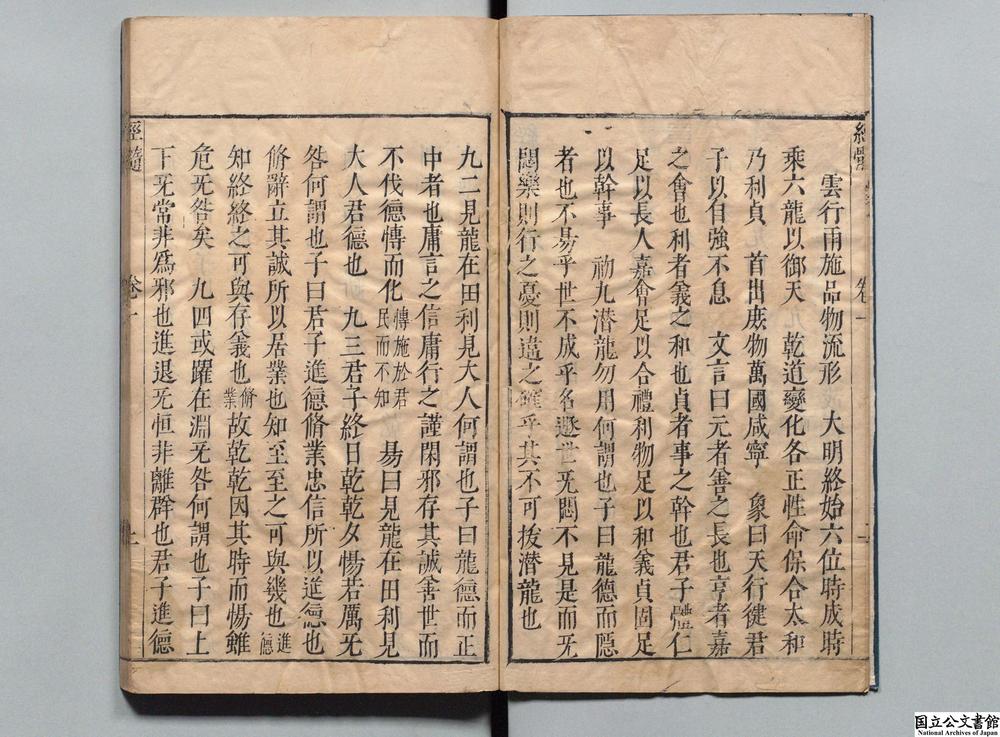 雲行雨施品物流形　大明終始六位時成時
乘六龍以御天　乾道變化各正性命保合太和
乃利貞　首出庶物萬國咸寧　象曰天行健君
子以自強不息　文言曰元者善之長也亨者嘉
之會也利者義之和也貞者事之幹也君子體仁
足以長人嘉會足以合禮利物足以和義貞固足
以幹事　初九潛龍勿用何謂也子曰龍德而隱
者也不昜乎世不成乎名遯世旡悶不見是而旡
悶樂則行之憂則違之確乎其不可拔潛龍也
九二見龍在田利見大人何謂也子曰龍德而正
中者也庸言之信庸行之謹閑邪存其誠善世而
不伐德愽而化愽施於君民而不知　昜曰見龍在田利見
大人君德也　九三君子終日乾乾夕惕若厲旡
咎何謂也子曰君子進德脩業忠信所以進德也
脩辭立其誠所以居業也知至至之可與幾也進德
知終終之可與存義也脩業故乾乾因其時而惕雖
危旡咎矣　九四或躍在淵旡咎何謂也子曰上
下旡常非爲邪也進退旡恒非離群也君子進德
卷一
上
国立公文書館
National Archives of Japan